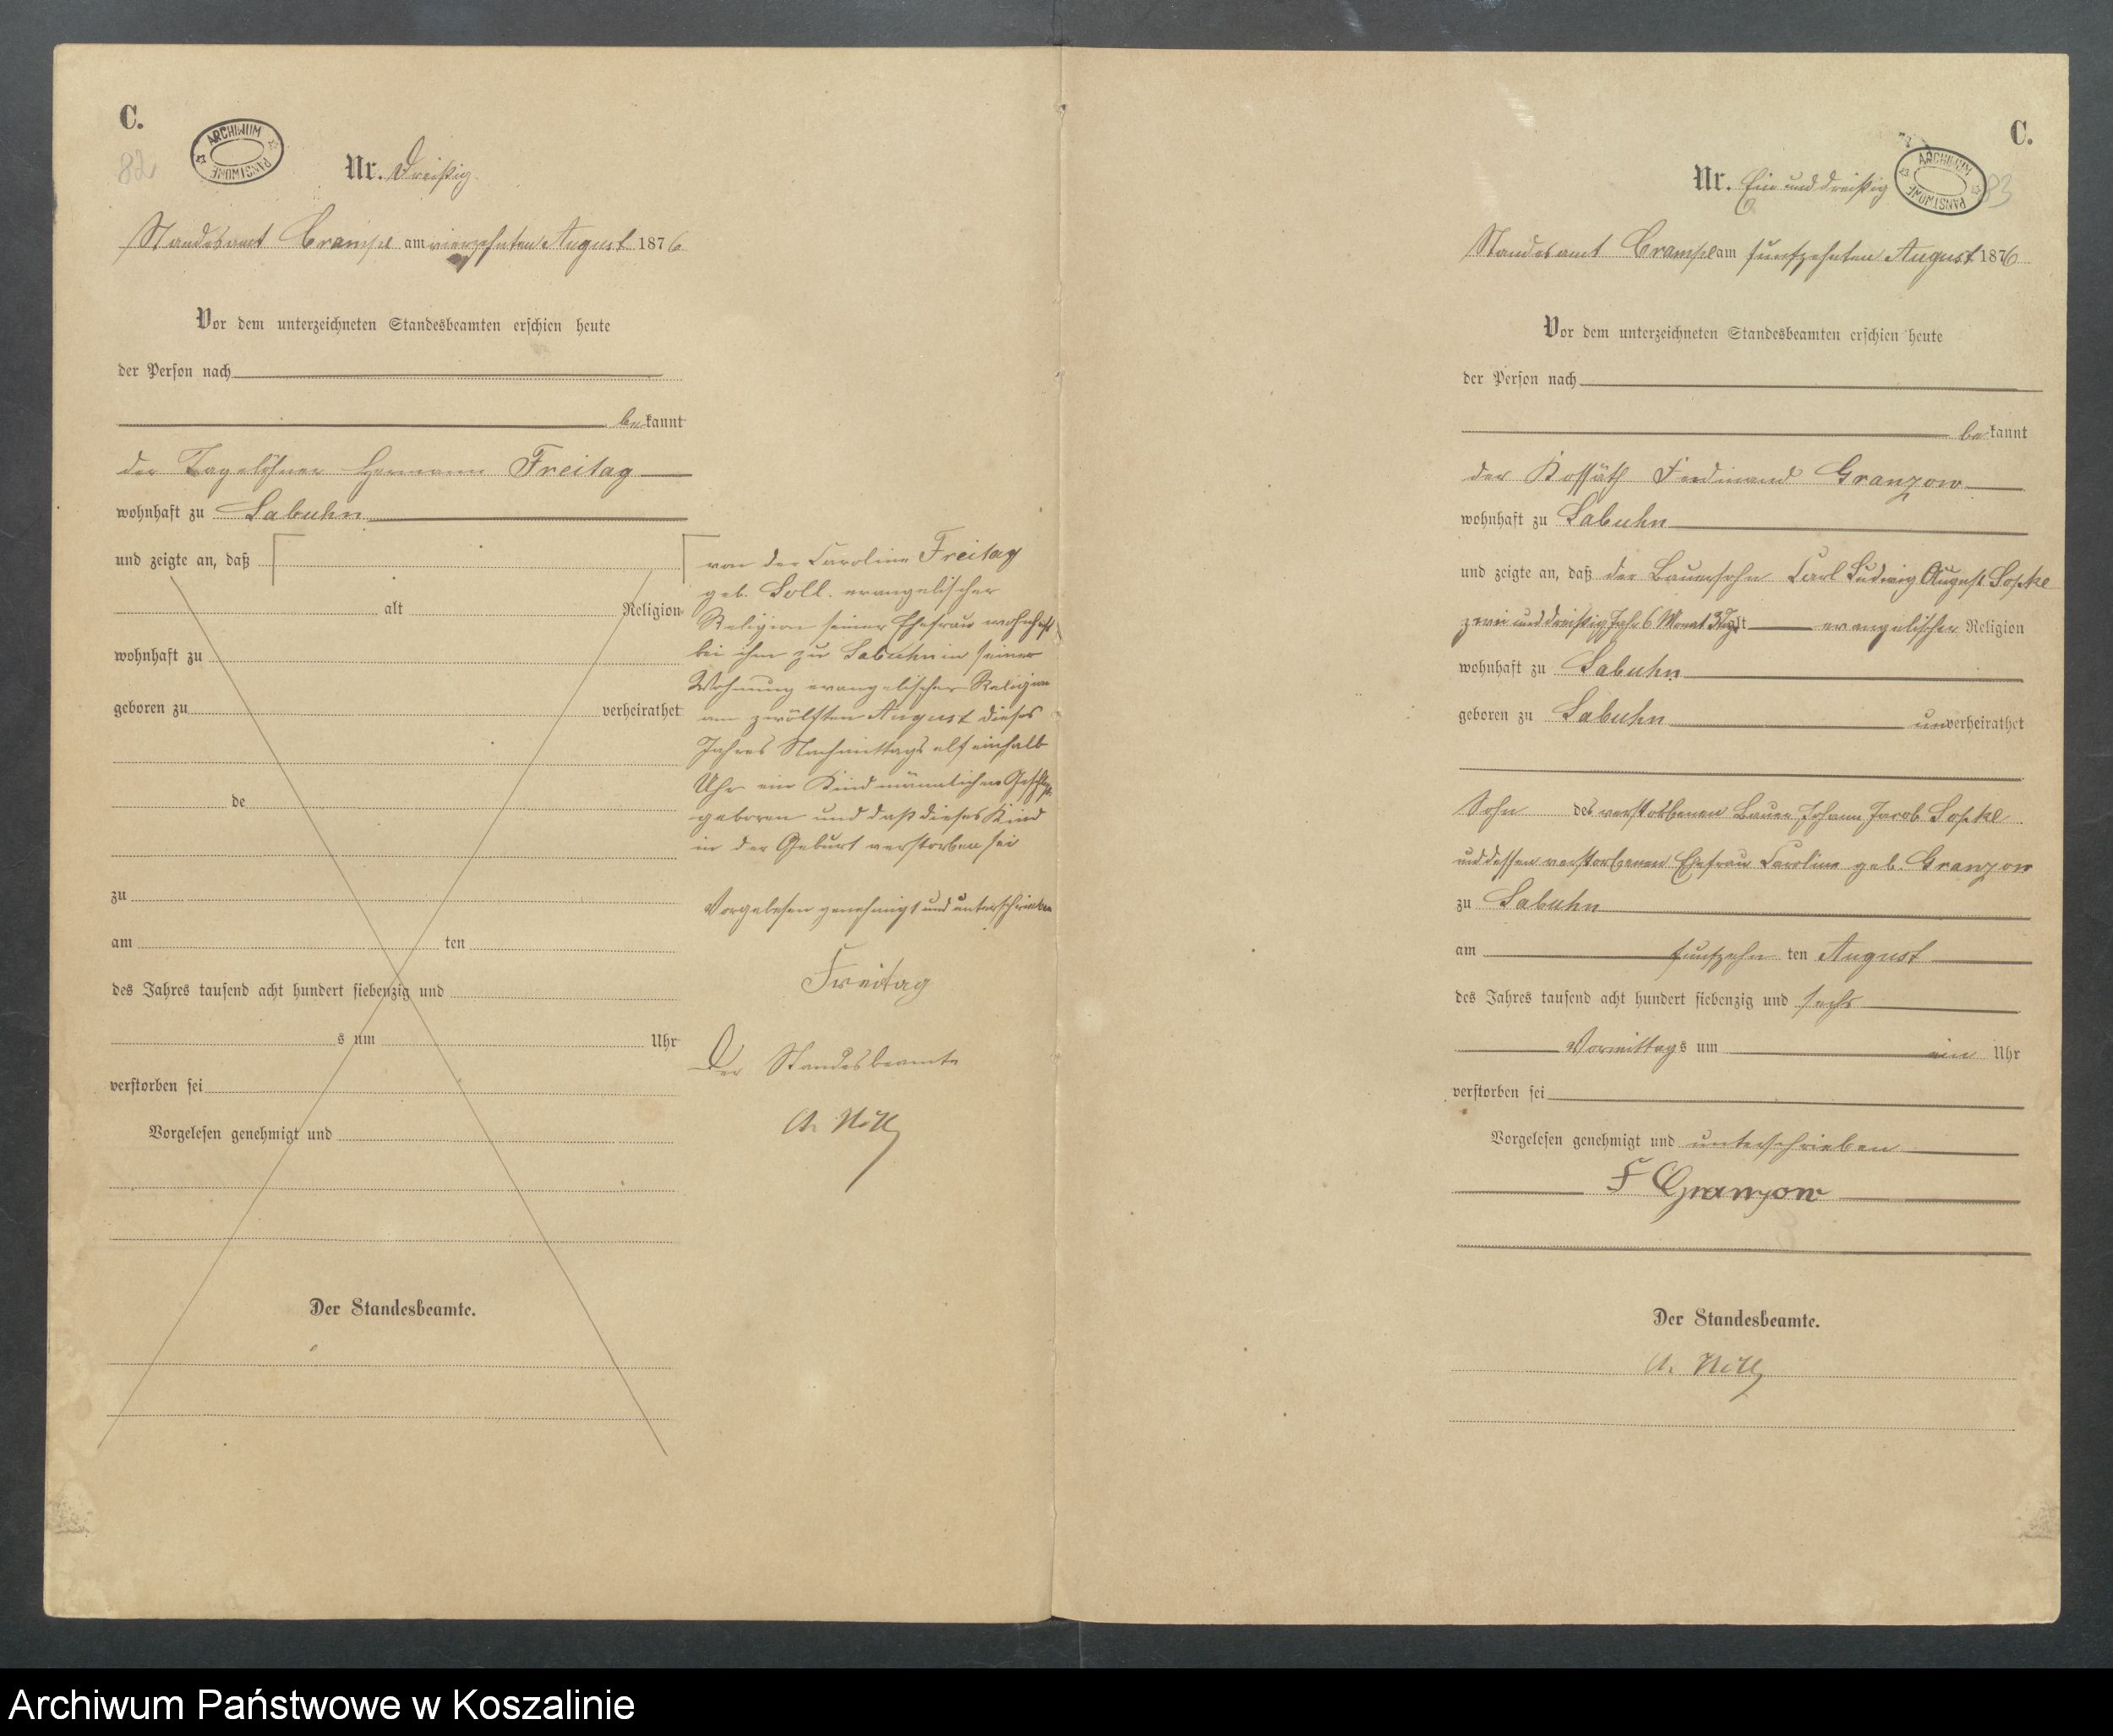 C.
82
ARCHIWUM PAŃSTWOWE
Nr. Dreißig.
Standesamt Crampe am vierzehnten August 1876
Vor dem unterzeichneten Standesbeamten erschien heute
der Person nach
bekannt
der Tagelöhner Hermann Freitag
wohnhaft zu Labuhn
und zeigte an, daß
alt Religion
wohnhaft zu
geboren zu verheirathet
de
zu
am ten
des Jahres tausend acht hundert siebenzig und
s um Uhr
verstorben sei
Vorgelesen genehmigt und
Der Standesbeamte.
von der Caroline Freitag
geb. Soll. evangelischer
Religion seiner Ehefrau wohnhaft
bei ihm zu Labuhn in seiner
Wohnung evangelischer Religion
am zwölften August dieses
Jahres Nachmittags elf einhalb
Uhr ein Kind männlichen Geschlechts
geboren und daß dieses Kind
in der Geburt verstorben sei
Vorgelesen genehmigt und unterschrieben
Freitag
Der Standesbeamte
C.
ARCHIWUM PAŃSTWOWE
83
Nr. Ein und dreißig
Standesamt Crampe am funfzehnten August 1876
Vor dem unterzeichneten Standesbeamten erschien heute
der Person nach
bekannt
der Kossäth Ferdinand Granzow
wohnhaft zu Labuhn
und zeigte an, daß der Bauersohn Carl Ludwig August Sopke
zwei und dreißig Jahr 6 Monat alt evangelischer Religion
wohnhaft zu Labuhn
geboren zu Labuhn unverheirathet
Sohn des verstorbenen Bauer Johann Jacob Sopke
und dessen verstorbenen Ehefrau Caroline geb. Granzow
zu Labuhn
am funfzehn ten August
des Jahres tausend acht hundert siebenzig und sechs
Vormittags um ein Uhr
verstorben sei
Vorgelesen genehmigt und unterschrieben
F Granzow
Der Standesbeamte.
Archiwum Państwowe w Koszalinie